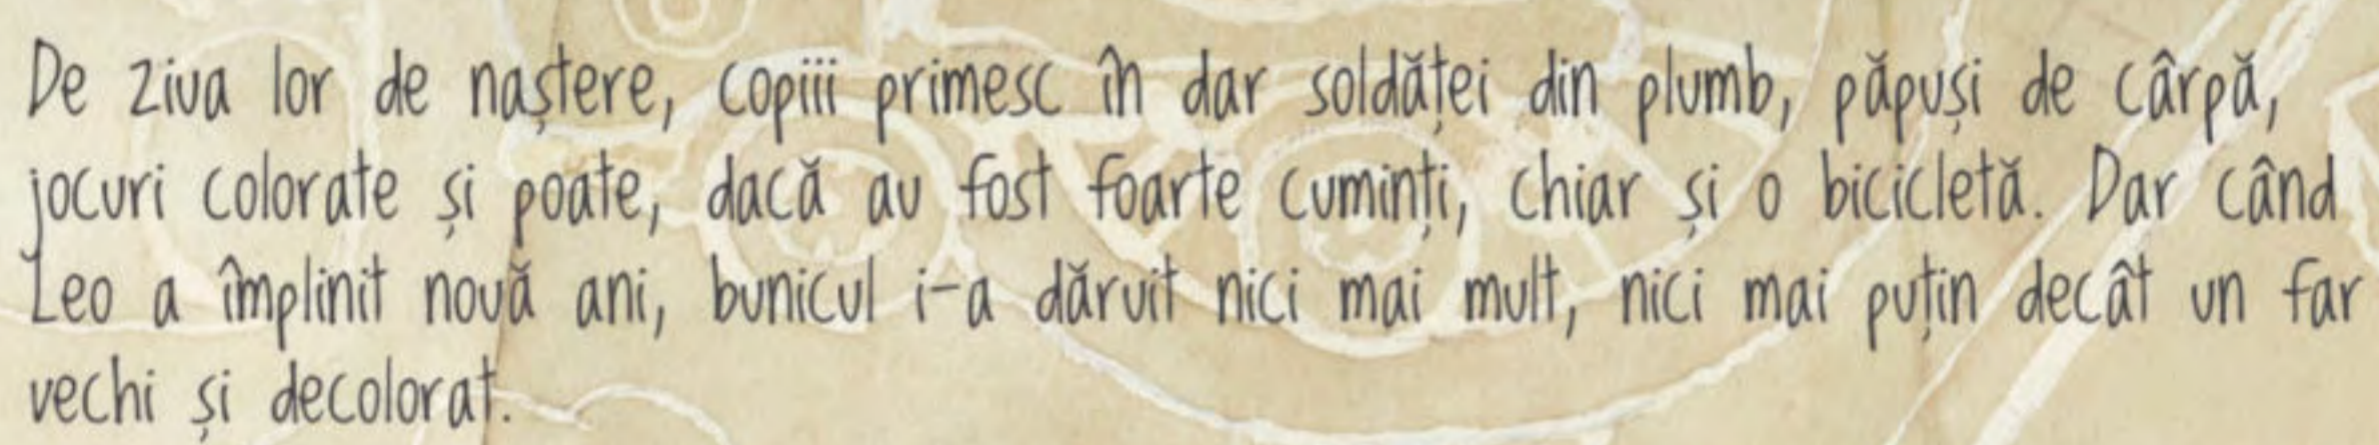 De ziua lor de naștere, copiii primesc în dar soldăței din plumb, păpuși de cârpă,
jocuri colorate și poate, dacă au fost foarte cuminți, chiar și o bicicletă. Dar când
Leo a împlinit nouă ani, bunicul i-a dăruit nici mai mult, nici mai puțin decât un far
vechi și decolorat.